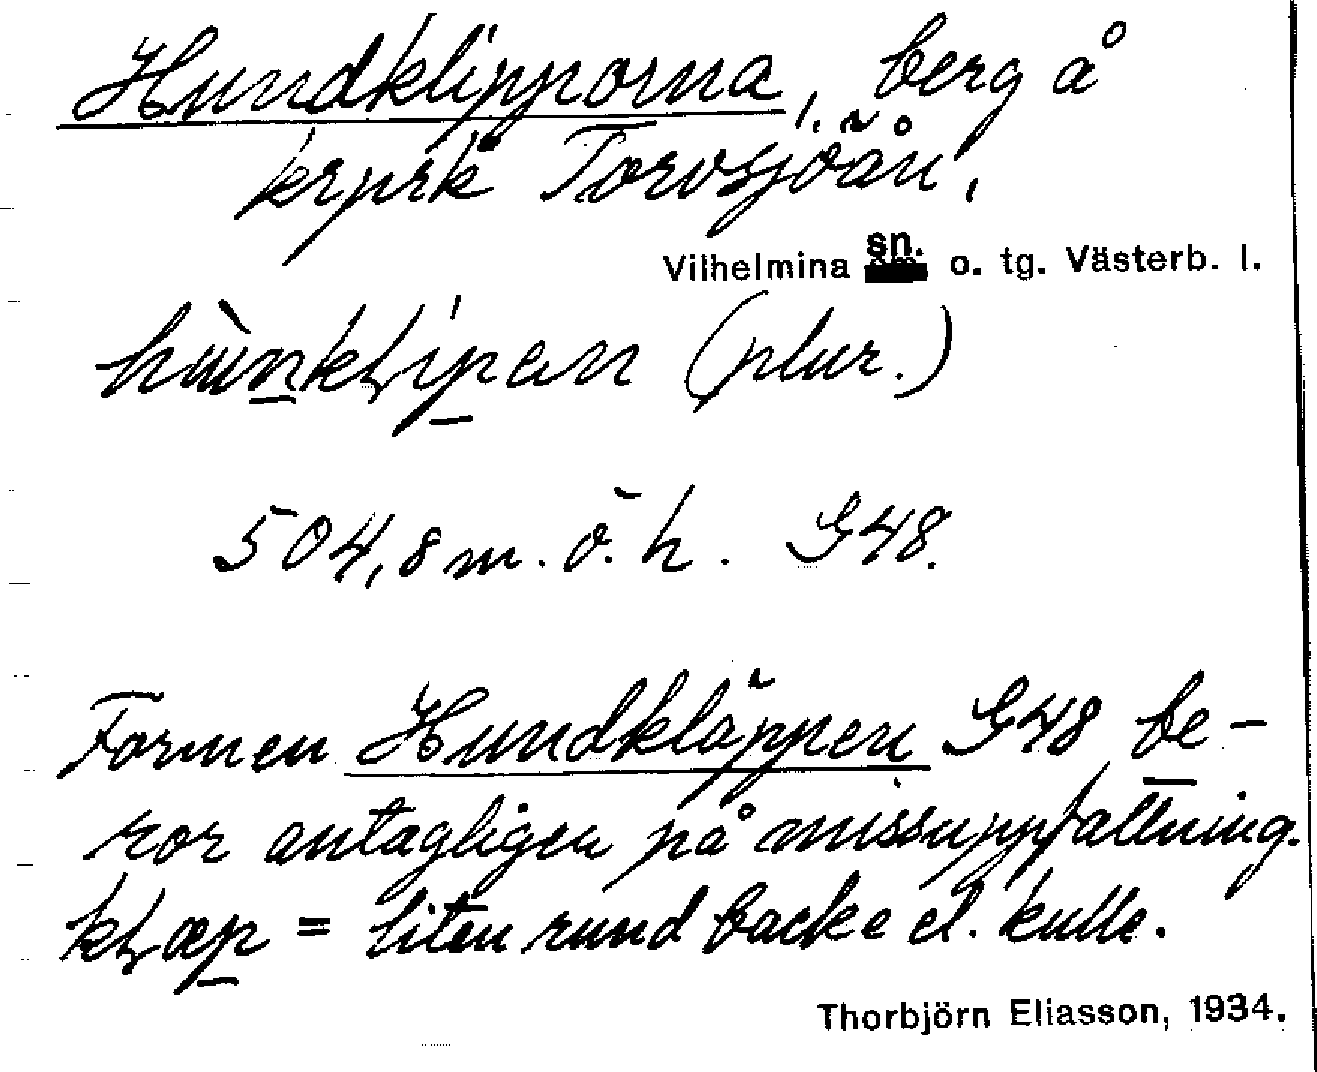 Hundklipporna, berg å
krprk Torvsjöån,
Vilhelmina sn. o. tg. Västerb. l.
(plur.)
504,8 m. ö. h. G48.
Formen Hundkläppen G48 be-
ror antagligen på missuppfattning.
= liten rund backe el. kulle.
Thorbjörn Eliasson, 1934.